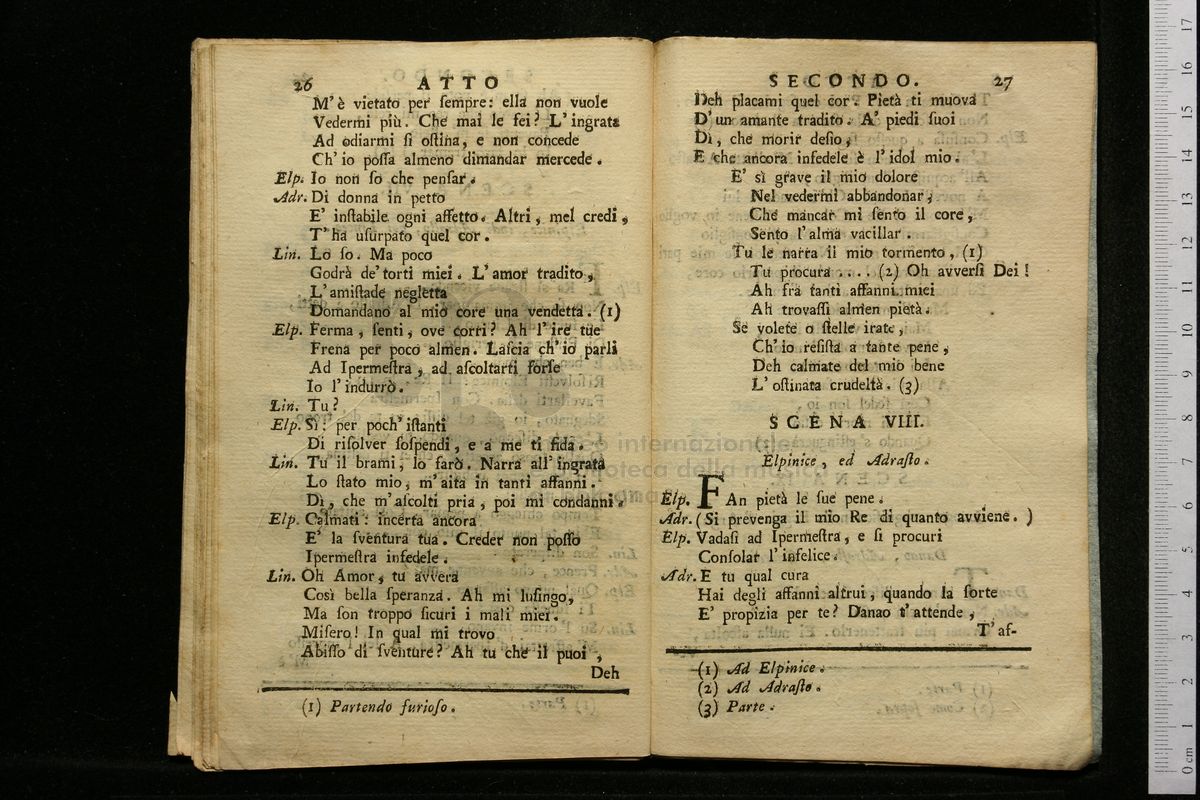 26 ATTO
M'è vietato per ſempre: ella non vuole
Vedermi più. Che mai le fei? L'ingrata
Ad odiarmi ſi oſtina, e non concede
Ch'io poſſa almeno dimandar mercede.
Elp. Io non ſo che penſar.
Adr. Di donna in petto
E' inſtabile ogni affetto. Altri, mel credi,
T'ha uſurpato quel cor.
Lin. Lo ſo. Ma poco
Godrà de'torti miei. L'amor tradito,
L'amiſtade negletta
Domandano al mio core una vendetta. (1)
Elp. Ferma, ſenti, ove corri? Ah l'ire tue
Frena per poco almen. Laſcia ch'io parli
Ad Ipermeſtra, ad aſcoltarti forſe
Io l'indurrò.
Lin. Tu?
Elp. Sì: per poch'iſtanti
Di riſolver ſoſpendi, e a me ti fida.
Lin. Tu il brami, lo farò. Narra all'ingrata
Lo ſtato mio, m'aita in tanti affanni.
Dì, che m'aſcolti pria, poi mi condanni.
Elp. Calmati: incerta ancora
E' la ſventura tua. Creder non poſſo
Ipermeſtra infedele.
Lin. Oh Amor, tu avvera
Così bella ſperanza. Ah mi luſingo,
Ma ſon troppo ſicuri i mali miei.
Miſero! In qual mi trovo
Abiſſo di ſventure? Ah tu che il puoi,
Deh
(1) Partendo furioſo.
SECONDO. 27
Deh placami quel cor. Pietà ti muova
D'un amante tradito. A' piedi ſuoi
Dì, che morir deſio,
E che ancora infedele è l'idol mio.
E' sì grave il mio dolore
Nel vedermi abbandonar,
Che mancar mi ſento il core,
Sento l'alma vacillar.
Tu le narra il mio tormento, (1)
Tu procura .... (2) Oh avverſi Dei!
Ah fra tanti affanni miei
Ah trovaſſi almen pietà.
Se volete o ſtelle irate,
Ch'io reſiſta a tante pene,
Deh calmate del mio bene
L'oſtinata crudeltà. (3)
SCENA VIII.
Elpinice, ed Adraſto.
Elp. FAn pietà le ſue pene.
Adr. (Si prevenga il mio Re di quanto avviene.)
Elp. Vadaſi ad Ipermeſtra, e ſi procuri
Conſolar l'infelice.
Adr. E tu qual cura
Hai degli affanni altrui, quando la ſorte
E' propizia per te? Danao t'attende,
T'af-
(1) Ad Elpinice.
(2) Ad Adraſto.
(3) Parte.